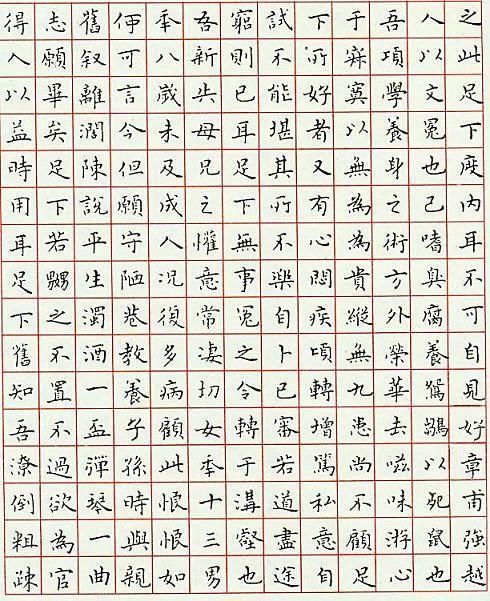 之此足下度内耳不可自見好章甫強越
人以文冕也己嗜臭腐養鴛鶵以死鼠也
吾項學養身之術方外榮華去滋味游心
于寂寞以無為為貴縱無九患尚不顧足
下所好者又有心悶疾頃轉增篤私意自
試不能堪其所不樂自卜已審若道盡途
窮則已耳足下無事冤之令轉于溝壑也
吾新失母兄之懽意常凄切女年十三男
年八歲未及成人況復多病顧此恨恨如
何可言今但願守陋巷教養子孫時與親
舊叙離濶陳說平生濁酒一盃彈琴一曲
志願畢矣足下若嬲之不置不過欲為官
得人以益時用耳足下舊知吾潦倒粗疎